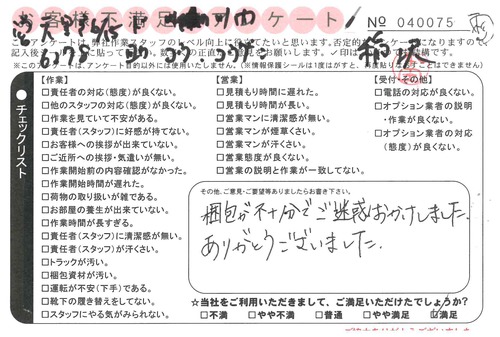 お客様不満足アンケート
№ 040075
このアンケートは、弊社作業スタッフのレベル向上に役立てたいと思います。否定的なアンケートになりますので
チェックリスト
【作業】
□責任者の対応(態度)が良くない。
□他のスタッフの対応(態度)が良くない。
□作業を見ていて不安がある。
□責任者(スタッフ)に好感が持てない。
□お客様への挨拶が出来ていない。
□ご近所への挨拶・気遣いが無い。
□作業開始前の内容確認がなかった。
□作業開始時間が遅れた。
□荷物の取り扱いが雑である。
□お部屋の養生が出来ていない。
□作業時間が長すぎる。
□責任者(スタッフ)に清潔感が無い。
□責任者(スタッフ)が汗くさい。
□トラックが汚い。
□梱包資材が汚い。
□運転が不安(下手)である。
□靴下の履き替えをしてない。
□スタッフにやる気がみられない。
【営業】
□見積もり時間に遅れた。
□見積もり時間が長い。
□営業マンに清潔感が無い。
□営業マンが煙草くさい。
□営業マンが汗くさい。
□営業態度が良くない。
□営業の説明と作業が一致してない。
【受付・その他】
□電話の対応が良くない。
□オプション業者の説明
・作業が良くない。
□オプション業者の対応
(態度)が良くない。
その他、ご意見・ご要望等ありましたらお書き下さい。
梱包が不十分でご迷惑おかけしました。
ありがとうございました。
☆当社をご利用いただきまして、ご満足いただけたでしょうか?
□不満 □やや不満 □普通 □やや満足 ☑満足